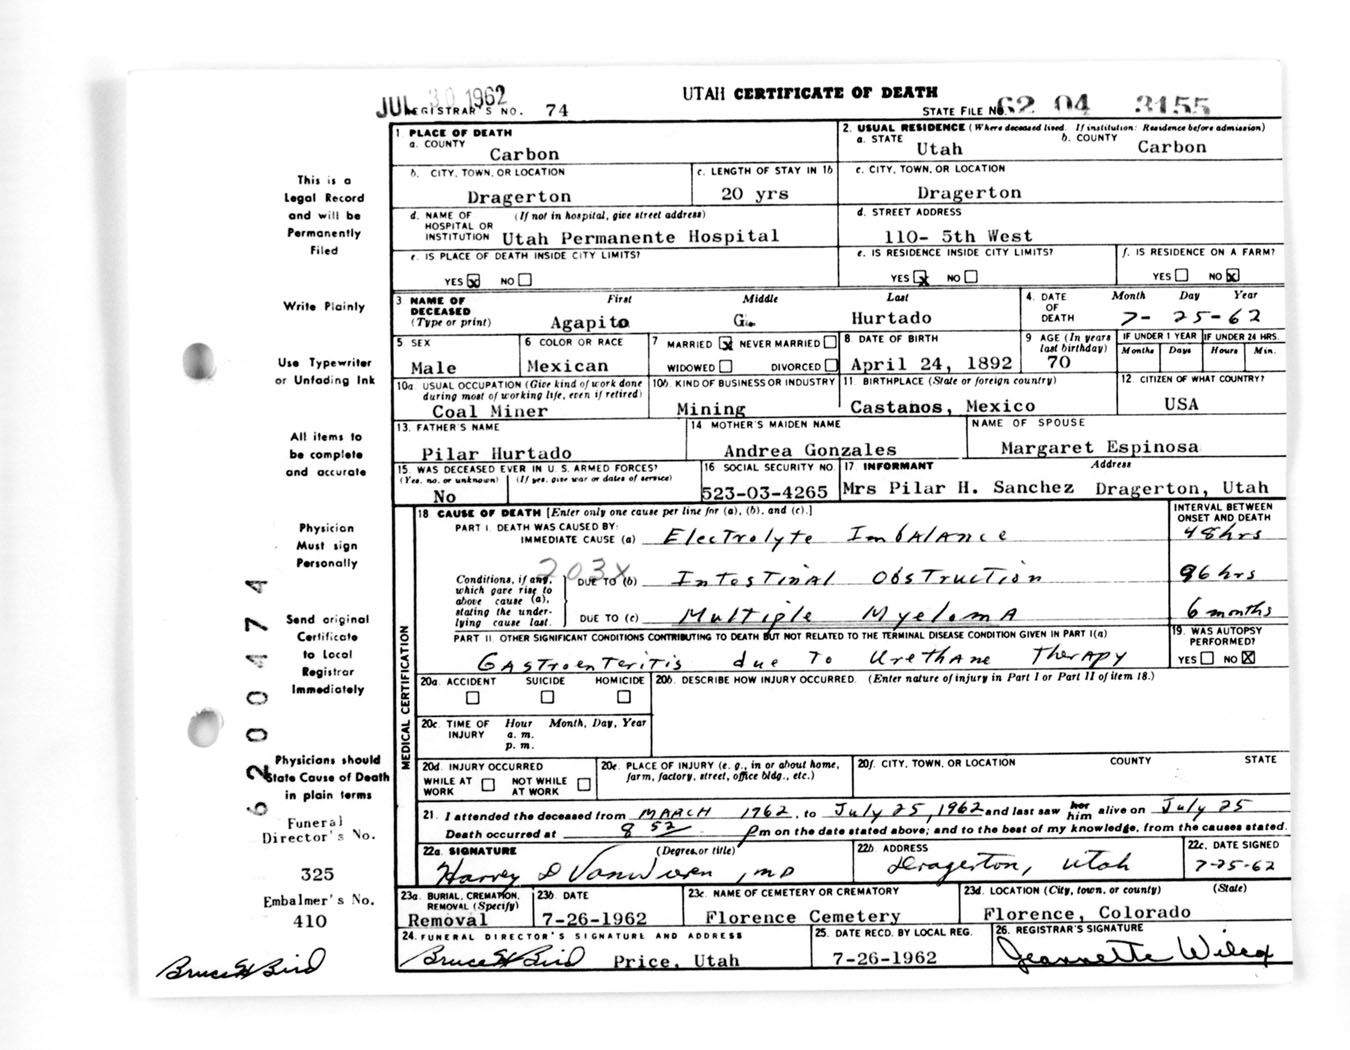 JUL 30 1962
UTAH CERTIFICATE OF DEATH
REGISTRAR'S NO. 74
STATE FILE NO. 62 04 3155
1. PLACE OF DEATH
a. COUNTY
Carbon
2. USUAL RESIDENCE (Where deceased lived. If institution: Residence before admission)
a. STATE Utah b. COUNTY Carbon
b. CITY, TOWN, OR LOCATION
Dragerton
c. LENGTH OF STAY IN 1b
20 yrs
c. CITY, TOWN, OR LOCATION
Dragerton
d. NAME OF HOSPITAL OR INSTITUTION (If not in hospital, give street address)
Utah Permanente Hospital
d. STREET ADDRESS
110- 5th West
e. IS PLACE OF DEATH INSIDE CITY LIMITS?
YES ☒ NO ☐
e. IS RESIDENCE INSIDE CITY LIMITS?
YES ☒ NO ☐
f. IS RESIDENCE ON A FARM?
YES ☐ NO ☒
3 NAME OF DECEASED (Type or print)
First Middle Last
Agapito G. Hurtado
4. DATE OF DEATH Month Day Year
7- 25-62
5 SEX
Male
6 COLOR OR RACE
Mexican
7 MARRIED ☒ NEVER MARRIED ☐
WIDOWED ☐ DIVORCED ☐
8. DATE OF BIRTH
April 24, 1892
9 AGE (In years last birthday)
70
IF UNDER 1 YEAR
Months Days
IF UNDER 24 HRS.
Hours Min.
10a. USUAL OCCUPATION (Give kind of work done during most of working life, even if retired)
Coal Miner
10b. KIND OF BUSINESS OR INDUSTRY
Mining
11. BIRTHPLACE (State or foreign country)
Castanos, Mexico
12. CITIZEN OF WHAT COUNTRY?
USA
13. FATHER'S NAME
Pilar Hurtado
14 MOTHER'S MAIDEN NAME
Andrea Gonzales
NAME OF SPOUSE
Margaret Espinosa
15. WAS DECEASED EVER IN U.S. ARMED FORCES?
(Yes, no, or unknown) (If yes, give war or dates of service)
No
16 SOCIAL SECURITY NO.
523-03-4265
17. INFORMANT Address
Mrs Pilar H. Sanchez Dragerton, Utah
18. CAUSE OF DEATH [Enter only one cause per line for (a), (b), and (c).]
INTERVAL BETWEEN ONSET AND DEATH
PART I. DEATH WAS CAUSED BY:
IMMEDIATE CAUSE (a) Electrolyte Imbalance 48 hrs
203X
Conditions, if any, which gave rise to above cause (a), stating the underlying cause last.
DUE TO (b) Intestinal Obstruction 96 hrs
DUE TO (c) Multiple Myeloma 6 months
PART II. OTHER SIGNIFICANT CONDITIONS CONTRIBUTING TO DEATH BUT NOT RELATED TO THE TERMINAL DISEASE CONDITION GIVEN IN PART I(a)
Gastroenteritis due to Urethane Therapy
19. WAS AUTOPSY PERFORMED?
YES ☐ NO ☒
MEDICAL CERTIFICATION
20a. ACCIDENT SUICIDE HOMICIDE
☐ ☐ ☐
20b. DESCRIBE HOW INJURY OCCURRED. (Enter nature of injury in Part I or Part II of item 18.)
20c. TIME OF INJURY Hour Month, Day, Year
a. m.
p. m.
20d. INJURY OCCURRED
WHILE AT WORK ☐ NOT WHILE AT WORK ☐
20e. PLACE OF INJURY (e. g., in or about home, farm, factory, street, office bldg., etc.)
20f. CITY, TOWN, OR LOCATION COUNTY STATE
21. I attended the deceased from MARCH 1962, to July 25, 1962 and last saw her him alive on July 25
Death occurred at 8 52 Pm on the date stated above; and to the best of my knowledge, from the causes stated.
22a. SIGNATURE (Degree or title)
Harvey D VanWieren, MD
22b. ADDRESS
Dragerton, Utah
22c. DATE SIGNED
7-25-62
23a. BURIAL, CREMATION, REMOVAL (Specify)
Removal
23b. DATE
7-26-1962
23c. NAME OF CEMETERY OR CREMATORY
Florence Cemetery
23d. LOCATION (City, town, or county) (State)
Florence, Colorado
24. FUNERAL DIRECTOR'S SIGNATURE AND ADDRESS
Bruce W Bird Price, Utah
25. DATE RECD. BY LOCAL REG.
7-26-1962
26. REGISTRAR'S SIGNATURE
Jeannette Wilcox
This is a
Legal Record
and will be
Permanently
Filed
Write Plainly
Use Typewriter
or Unfading Ink
All items to
be complete
and accurate
Physician
Must sign
Personally
Send original
Certificate
to Local
Registrar
Immediately
Physicians should
State Cause of Death
in plain terms
Funeral
Director's No.
325
Embalmer's No.
410
Bruce W Bird
6200474